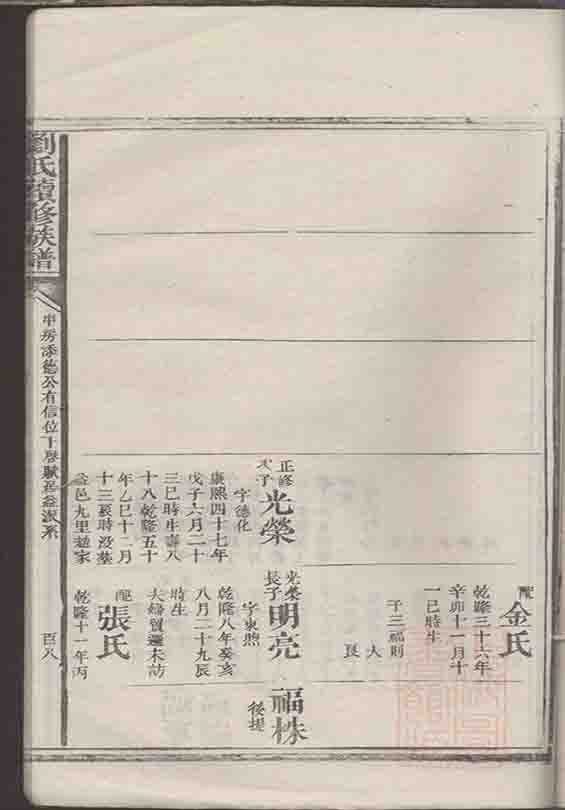 配
金氏
乾隆三十六年
辛卯十一月十
一巳時生
子三福則
大
良
正修
次子
光榮
字德化
康熙四十七年
戊子六月二十
三巳時生壽八
十八乾隆五十
年乙巳十二月
十三辰時没葬
益邑九里
光榮
長子
明亮
字東照
乾隆八年癸亥
八月二十九辰
時生
夫婦貿遷未訪
配
張氏
乾隆十一年丙
福株
後提
劉氏續修族譜
公有信位下
百八